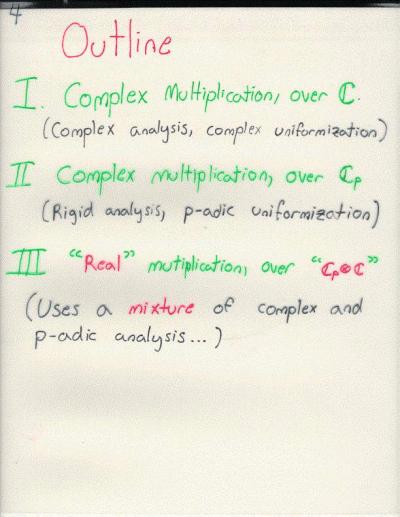 4
Outline
I. Complex Multiplication, over ℂ.
(Complex analysis, complex uniformization)
II Complex multiplication, over ℂp
(Rigid analysis, p-adic uniformization)
III "Real" mutiplication, over "ℂp⊗ℂ"
(Uses a mixture of complex and
p-adic analysis...)